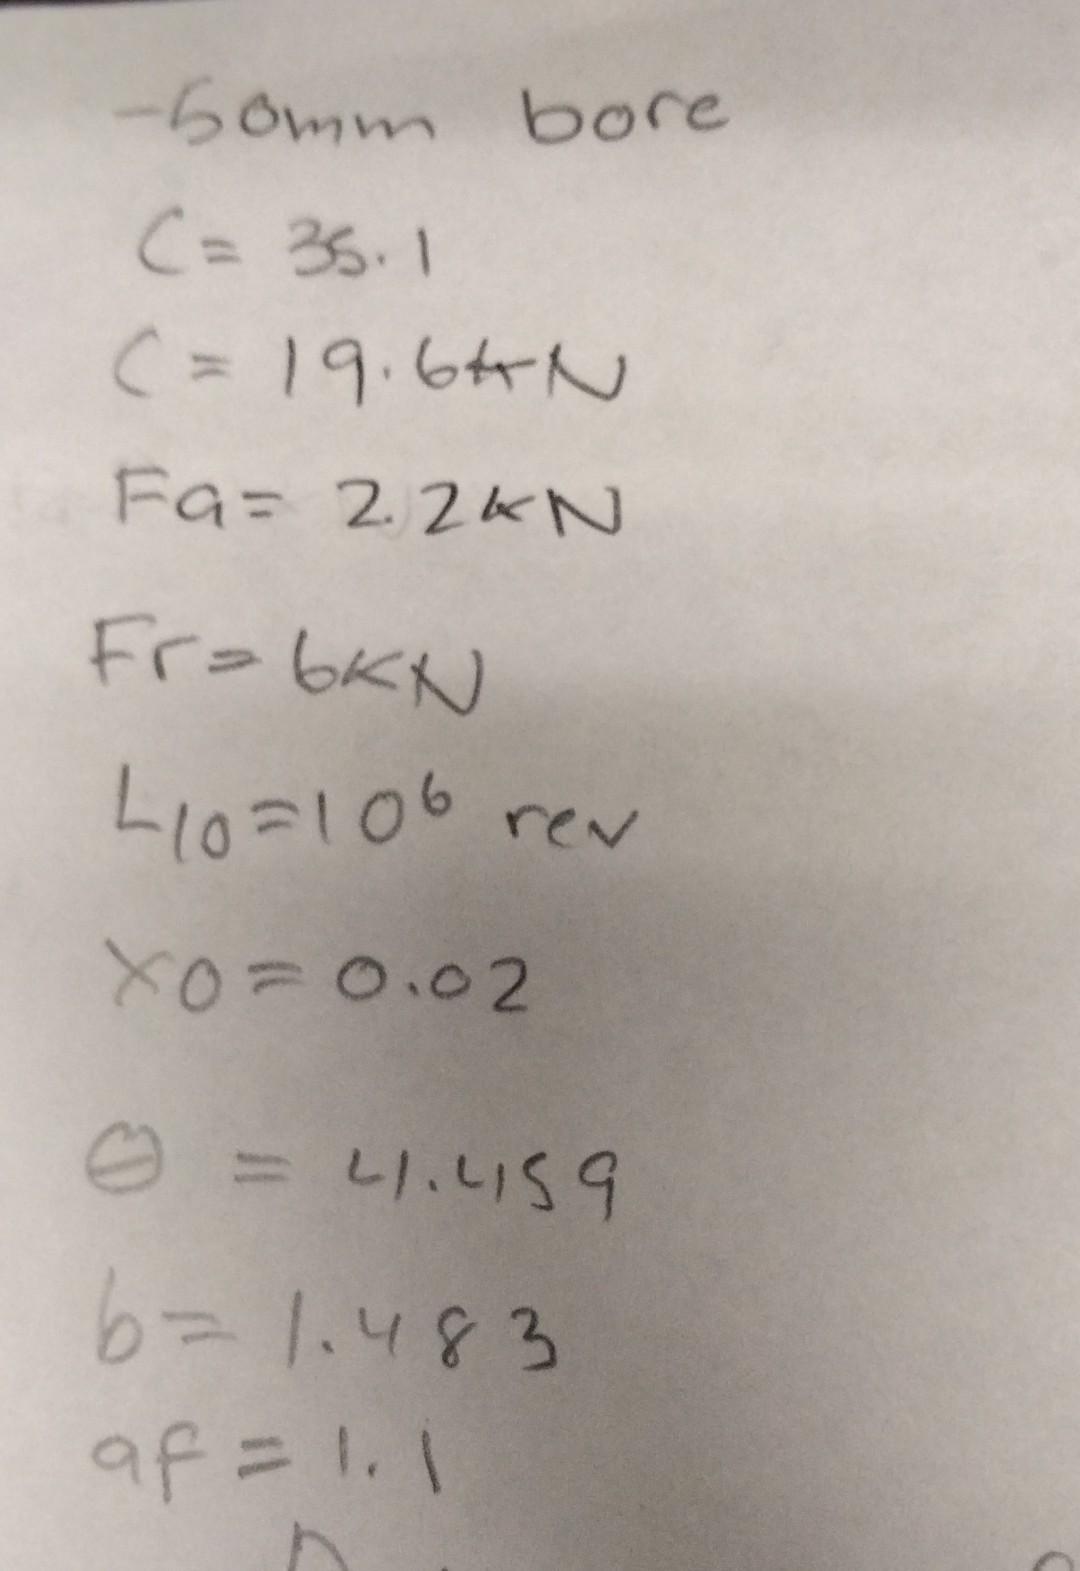 -50mm bore
C= 35.1
C= 19.6kN
Fa= 2.2kN
Fr= 6KN
L10=10⁶ rev
X0=0.02
θ = 4.459
b= 1.483
af= 1.1